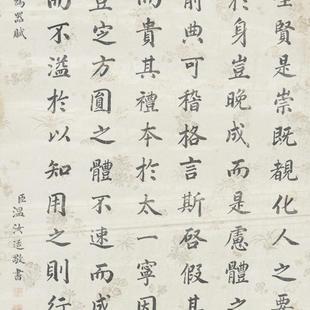 聖賢是崇既覩化人之要
於身豈晚成而是慮體之
前典可稽格言斯啓假其
而貴其禮本於太一寧因
豈定方圓之體不速而成
而不溢於以知用之則行
爲器賦
臣溫汝适敬書